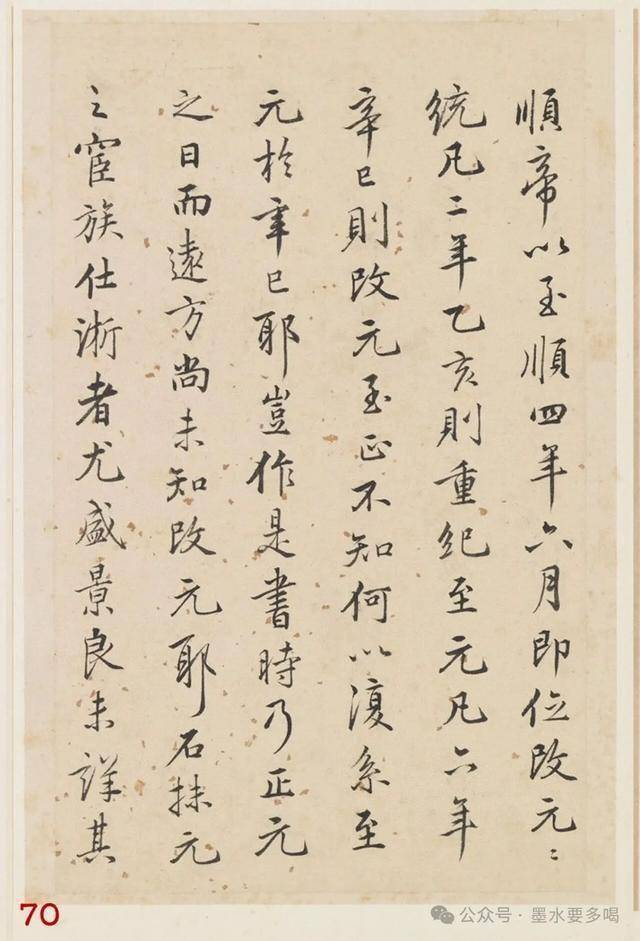 順帝以至順四年六月即位改元〻
統凡二年乙亥則重紀至元凡六年
辛巳則改元至正不知何以復系至
元於辛巳耶豈作是書時乃正元
之日而遠方尚未知改元耶石抹元
之宦族仕浙者尤盛景良未詳其
70
公众号·墨水要多喝